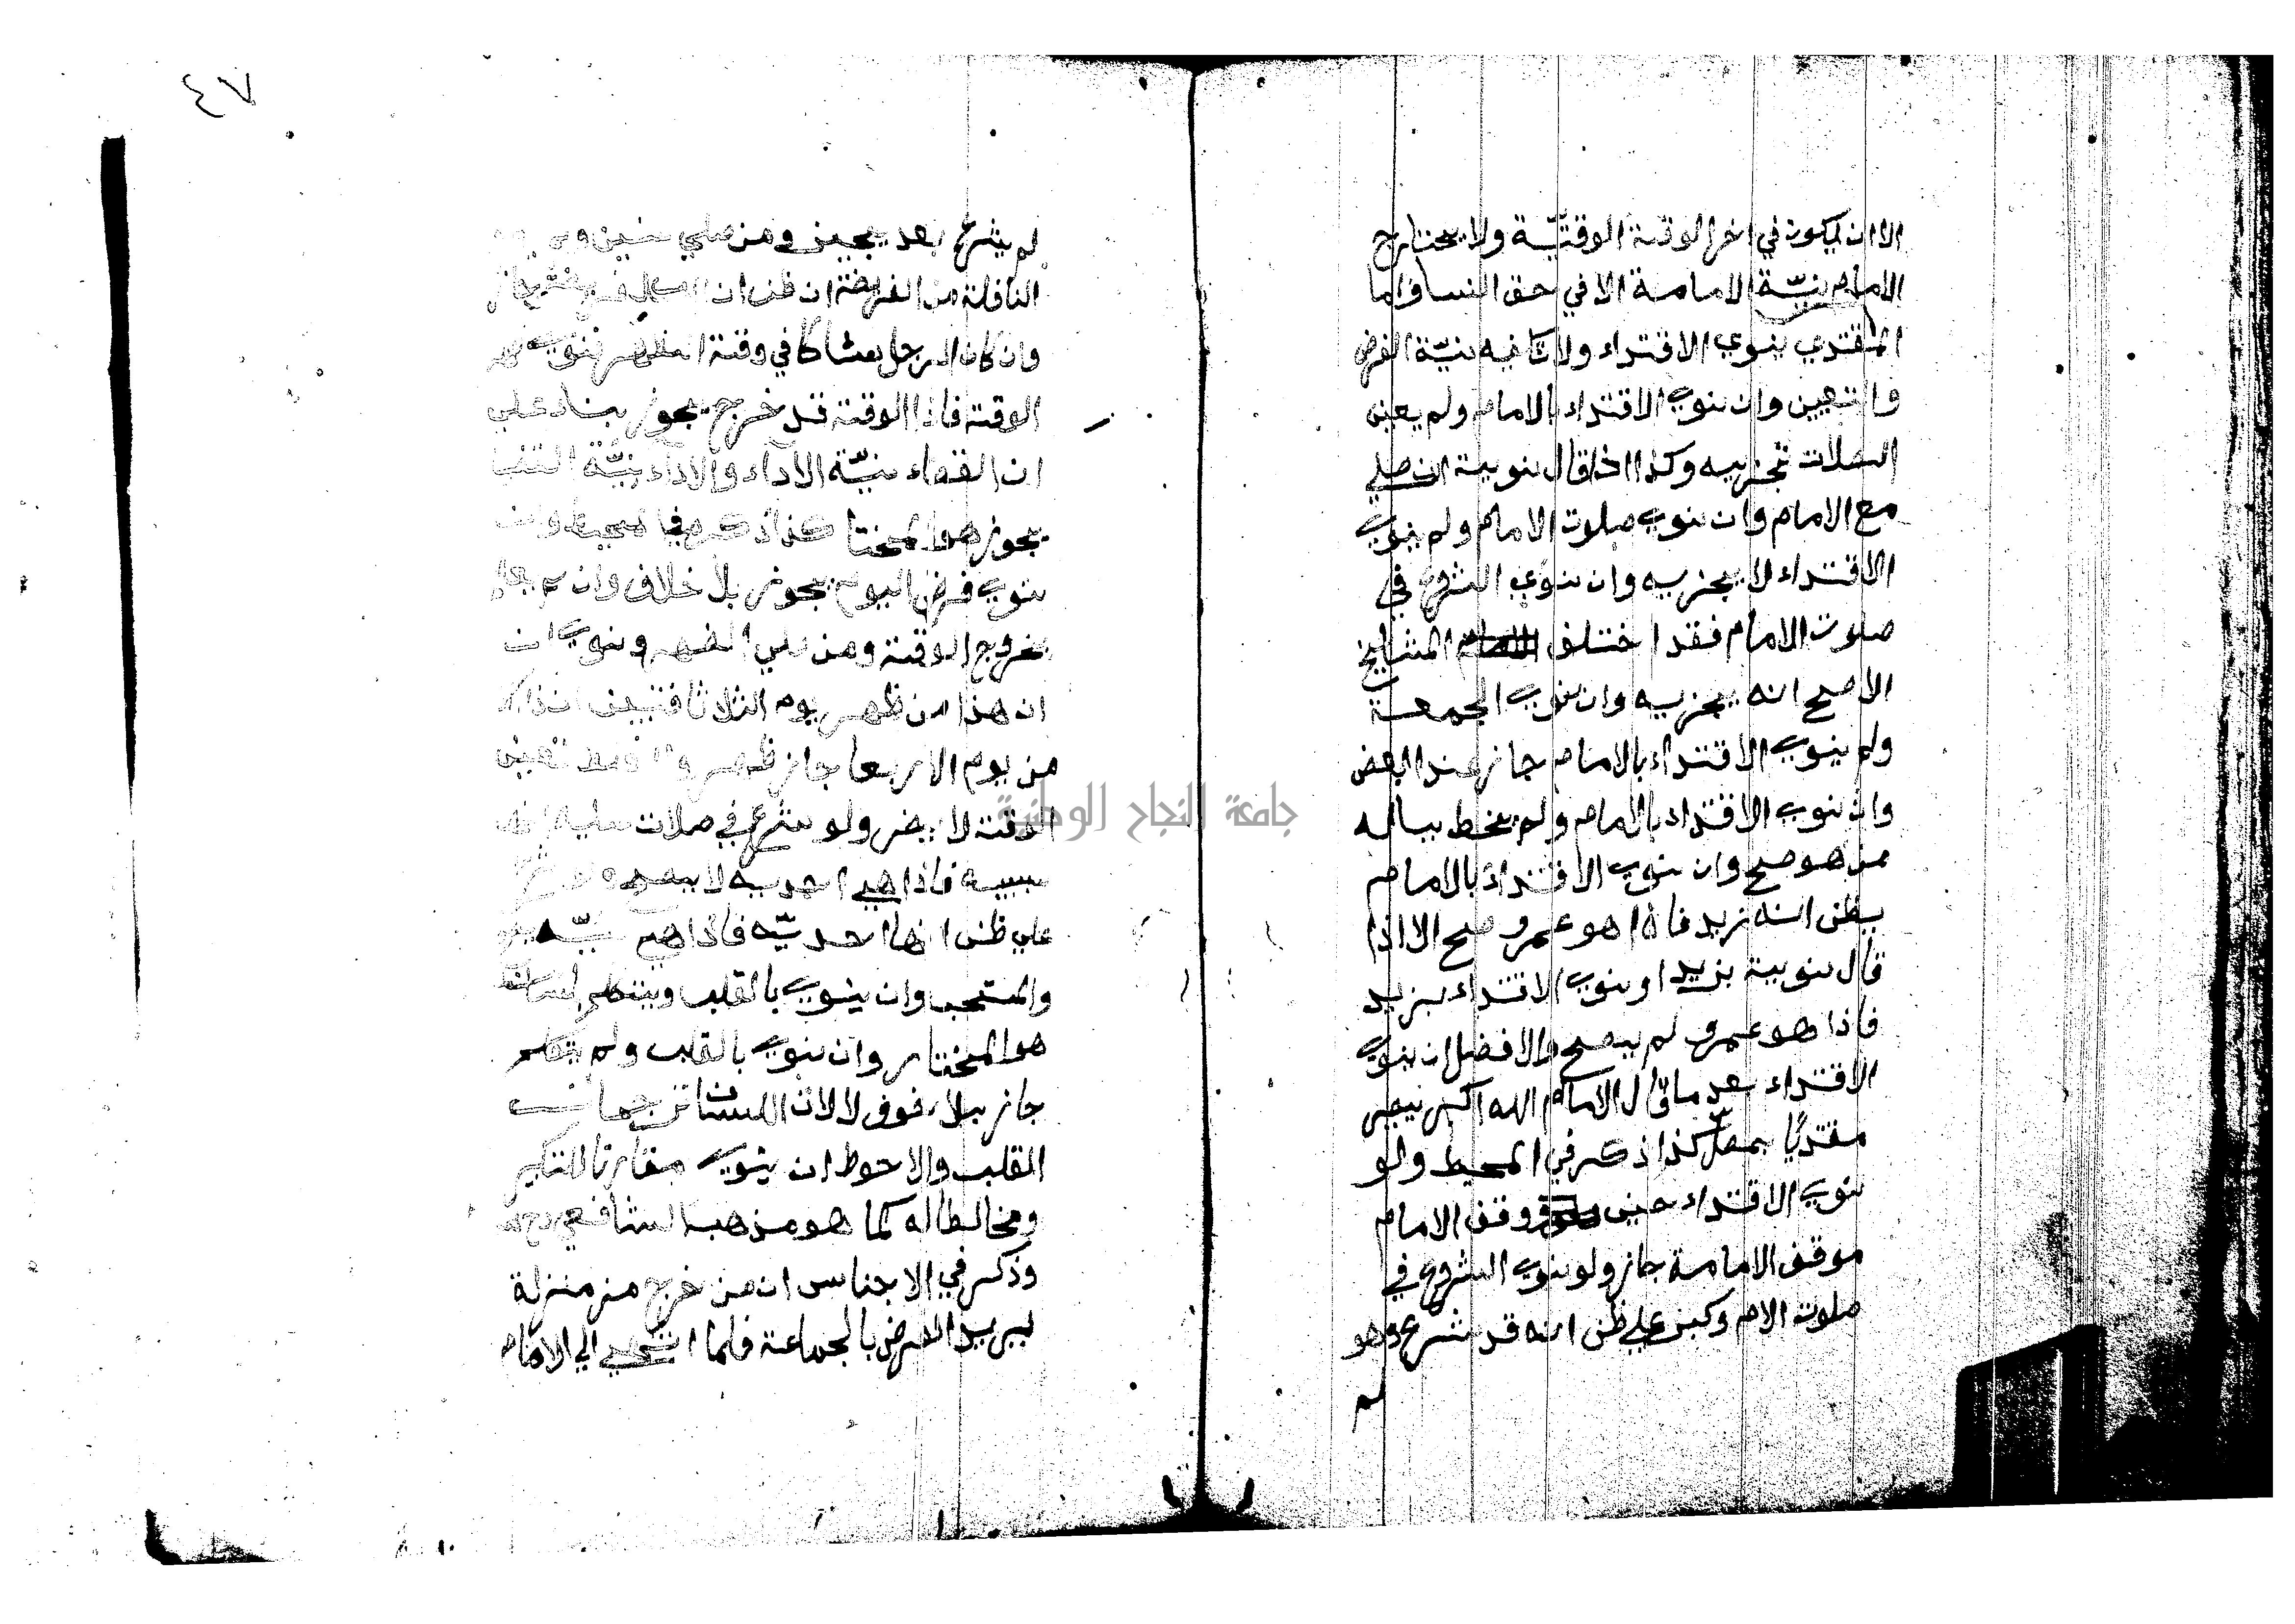 ٤٧
الا ان يكون في اخر الوقت الوقتيّة ولا يحتارج
الامام بنيّة الامامة الا في حق النسا واما
المقتدي ينوي الاقتداء ولا كافيه بنيّة الفرض
والتعين وان ينوي الاقتداء بالامام ولم يعين
الصلات تجزيه وكذا اذا قال نويت ان صلي
مع الامام وان ينوي صلوت الامام ولم ينوي
الاقتداء لا يجزيه وان نوي الشروع في
صلوت الامام فقد اختلف المشايخ
الاصح انه يجزيه وان نوي الجمعة
ولم ينوي الاقتداء بالامام جاز عند البعض
وان ينوي الاقتداء بالامام ولم يخط بباله
من هو صح وان ينوي الاقتداء بالامام
يظن انه زيد فاذا هو عمرو صح الا اذا
قال نويت بزيد او ينوي الاقتداء بزيد
فاذا هو عمرو لم يصح والافضل ان ينوي
الاقتداء بعد ما قال الامام الله اكبر
مقتديًا بمصلّ كذا ذكر في المحيط ولو
نوي الاقتداء حين وقف الامام
موقف الامامة جاز ولو ينوي الشروع في
صلوت الام وكبر علي ظن انه قد شرع وهو
لم
لم يشرع بعد يجيز ومن صلي سنين ولم
النافلة من الفريضة ان ظن ان
وان كان الرجل بعشا كا في وقت الظهر ينوي
الوقت فاذا الوقت قد خرج يجوز بناء علي
ان القضاء بنيّة الآداء والآداء بنيّة القضا
يجوز هو المختا كذا ذكر في المحيط وان
ينوي فرض اليوم يجوز بلا خلاف وان لم يعلم
بخروج الوقت ومن صلي الظهر وينوي ان
ان هذا من ظهر يوم الثلاثا فتبين ان ذاك
من يوم الاربعا جاز ظهر تعين
الوقت لا يضر ولو شرع في صلات عليه
سببيه فاذا هي احديه لا يصح
علي ظن انها احديّه فاذا هي
والمستحب وان ينوي بالقلب ويتكلم بلسان
هو المختار وان ينوي بالقلب ولم يتكلم
جاز بلا خوف لا لان اللسان ترجمان
القلب والاحوط ان ينوي مقارنا للتكبير
ومخالطا له كما هو مذهب الشافعي
وذكر في الاجناس ان من خرج من منزلة
ليريد الفرض بالجماعة فلما انتهي الي الامام
جامعة النجاح الوطنية